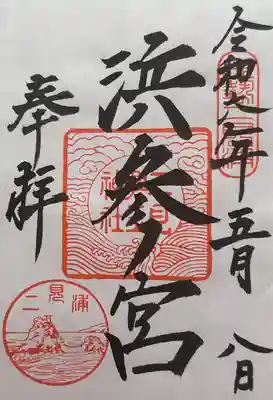 令和 年五月八日
浜参宮
奉拝
二見浦